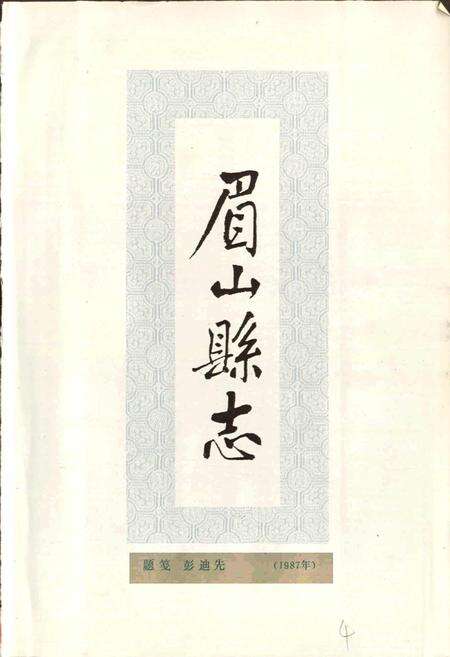 眉山縣志
題笺 彭迪先 (1987年)
4